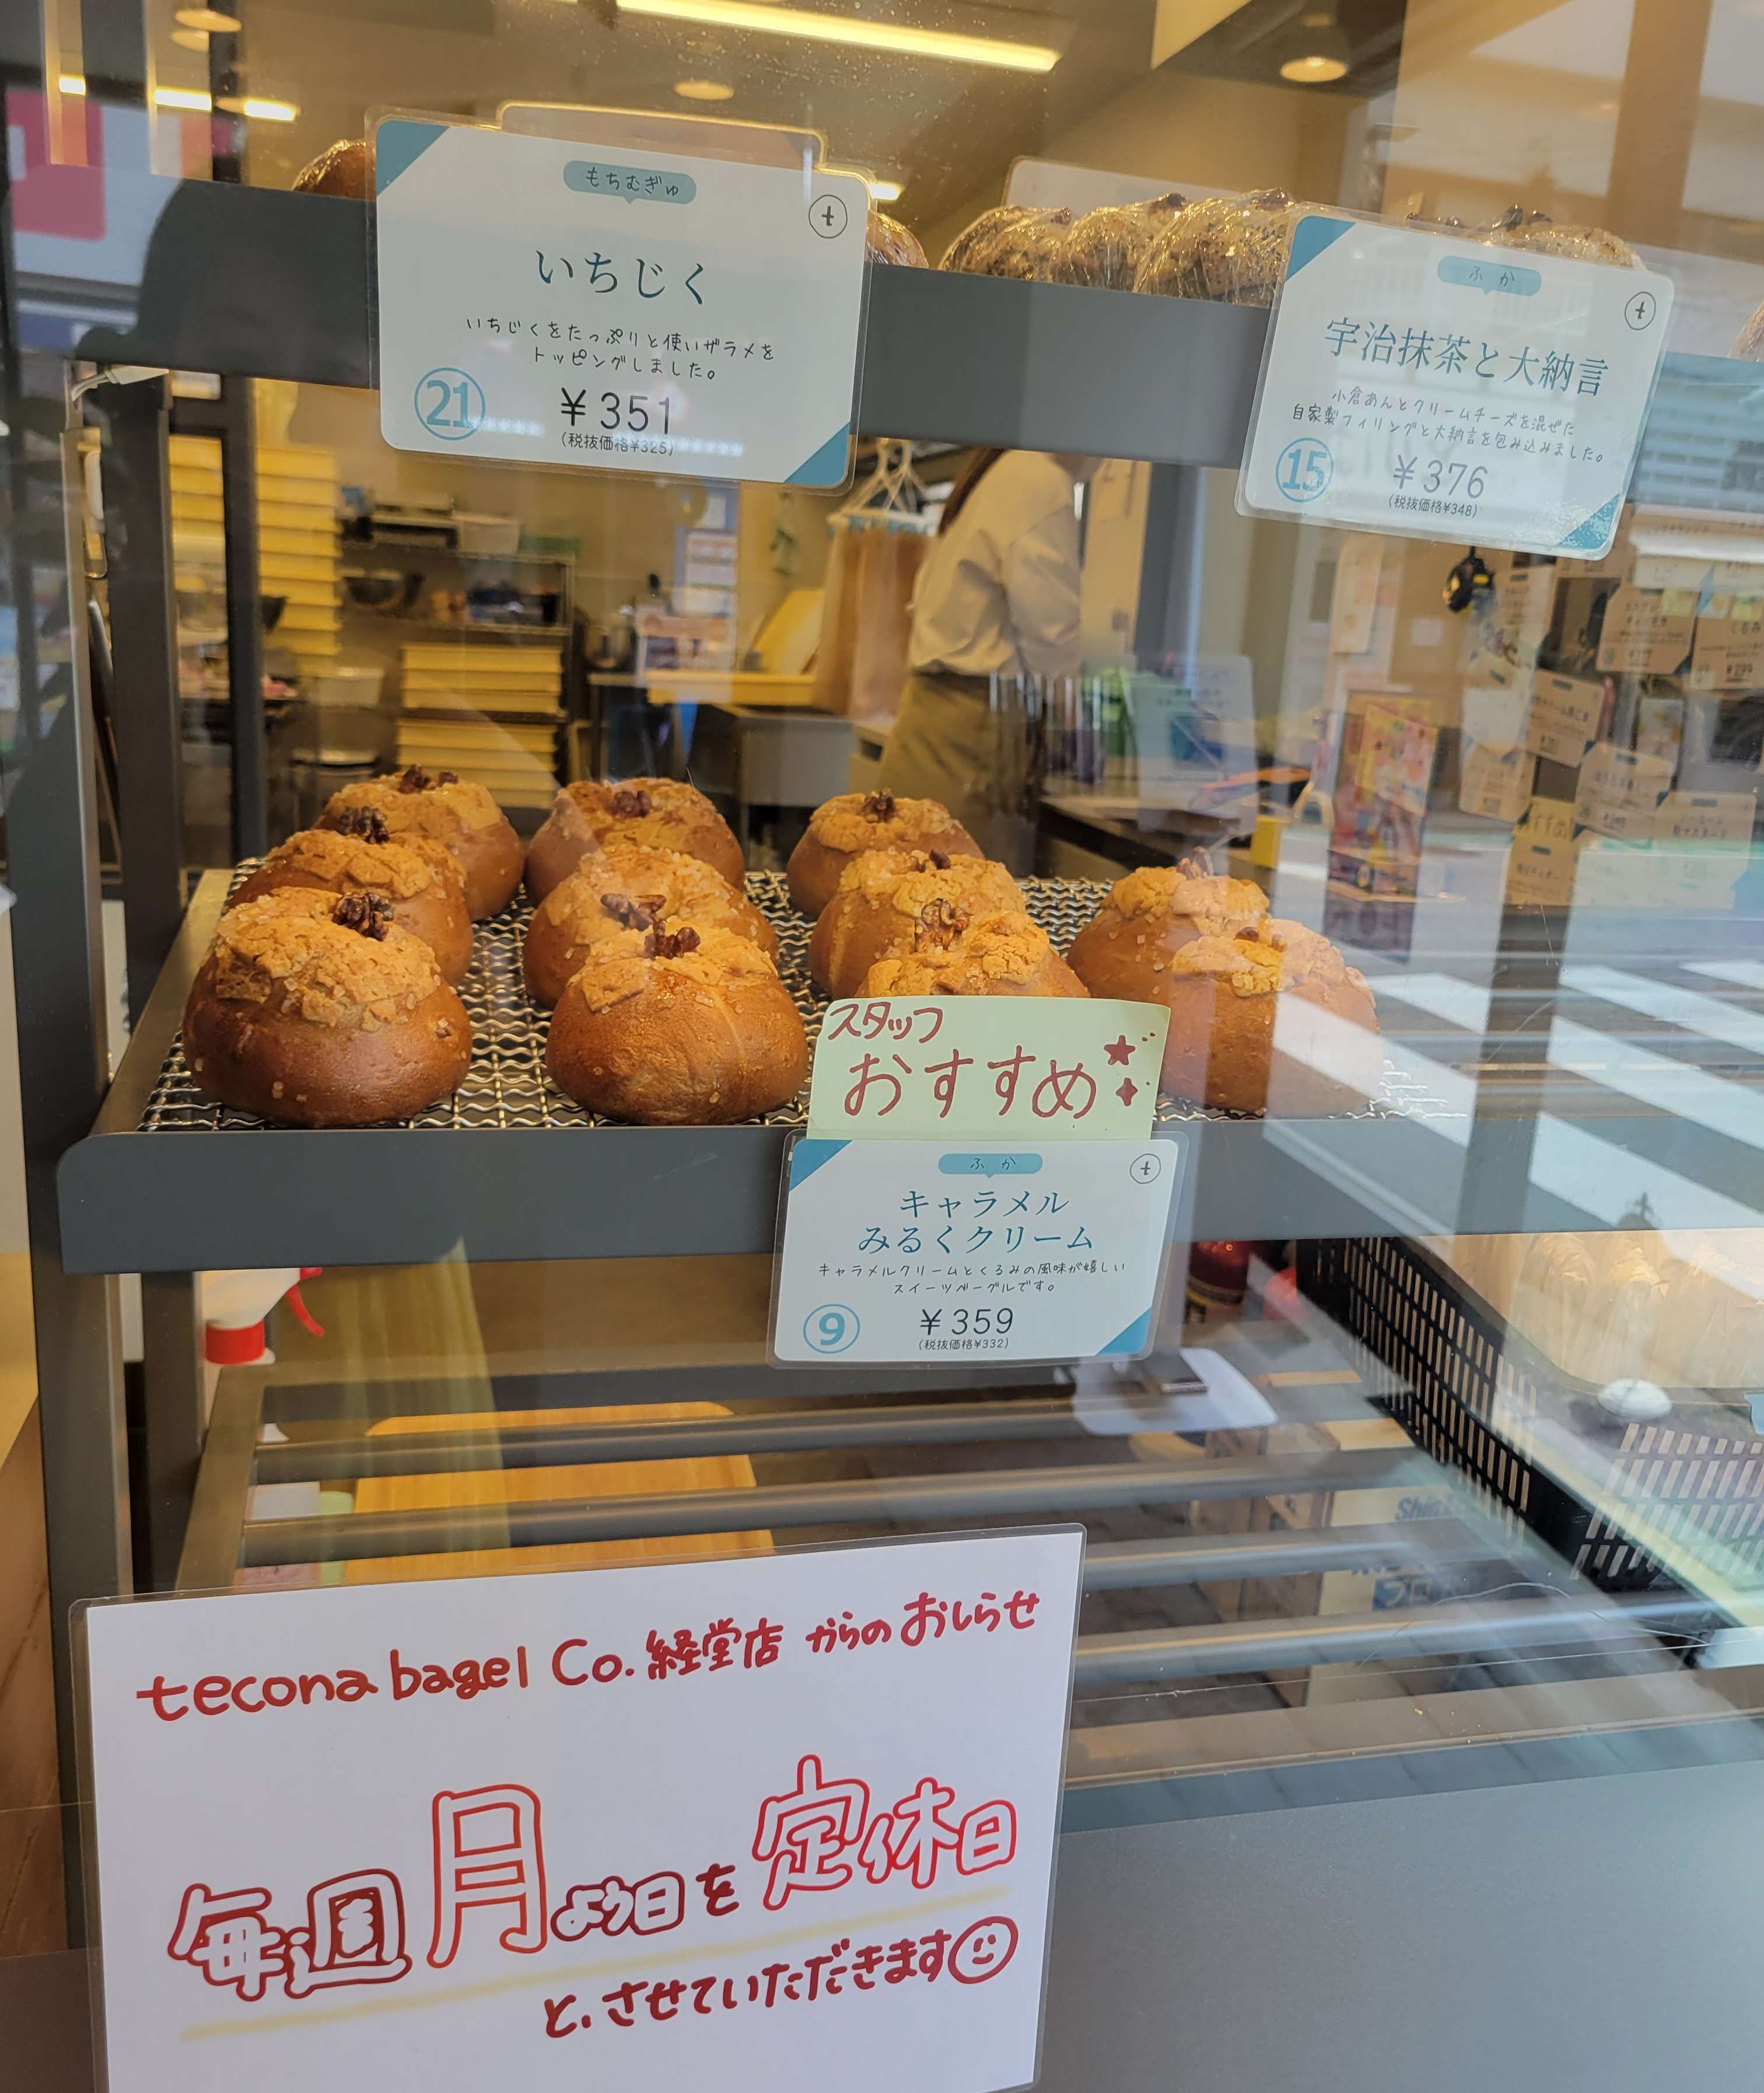 もちむぎゅ
t
いちじく
いちじくをたっぷりと使いザラメを
トッピングしました。
21
¥351
(税抜価格¥325)
ふか
t
宇治抹茶と大納言
小倉あんとクリームチーズを混ぜた
自家製フィリングと大納言を包み込みました。
15
¥376
(税抜価格¥348)
スタッフ
おすすめ
ふか
t
キャラメル
みるくクリーム
キャラメルクリームとくるみの風味が嬉しい
スイーツベーグルです。
9
¥359
(税抜価格¥332)
tecona bagel Co. 経堂店 からのおしらせ
毎週月よう日を定休日
と、させていただきます